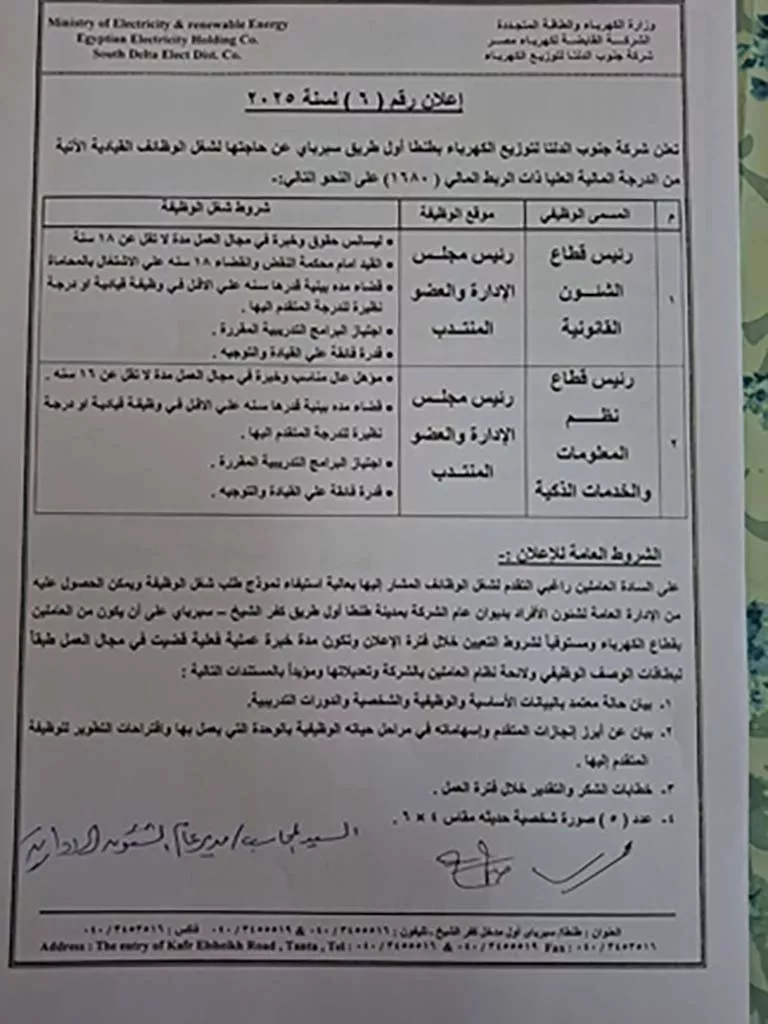 Ministry of Electricity & renewable Energy
Egyptian Electricity Holding Co.
South Delta Elect Dist. Co.
وزارة الكهرباء والطاقة المتجددة
الشركة القابضة لكهرباء مصر
شركة جنوب الدلتا لتوزيع الكهرباء
إعلان رقم ( ٦ ) لسنة ٢٠٢٥
تعلن شركة جنوب الدلتا لتوزيع الكهرباء بطنطا أول طريق سبرباي عن حاجتها لشغل الوظائف القيادية الأتية
من الدرجة المالية العليا ذات الربط المالي ( ١٦٨٠) على النحو التالي:-
م
المسمى الوظيفي
موقع الوظيفة
شروط شغل الوظيفة
١
رئيس قطاع
الشئون
القانونية
رئيس مجلس
الإدارة والعضو
المنتدب
• ليسانس حقوق وخبرة في مجال العمل مدة لا تقل عن ١٨ سنة
• القيد امام محكمة النقض والقضاء ١٨ سنه علي الاشتغال بالمحاماة
• قضاء مده بينية قدرها سنه علي الاقل في وظيفة قيادية او درجة
نظيرة للدرجة المتقدم اليها .
• اجتياز البرامج التدريبية المقررة .
• قدرة فائقة علي القيادة والتوجيه .
٢
رئيس قطاع
نظم
المعلومات
والخدمات الذكية
رئيس مجلس
الإدارة والعضو
المنتدب
• مؤهل عال مناسب وخبرة في مجال العمل مدة لا تقل عن ١٦ سنه .
• قضاء مده بينية قدرها سنه علي الاقل في وظيفة قيادية او درجة
نظيرة للدرجة المتقدم اليها .
• اجتياز البرامج التدريبية المقررة .
• قدرة فائقة علي القيادة والتوجيه .
الشروط العامة للإعلان :-
على السادة العاملين راغبي التقدم لشغل الوظائف المشار إليها بعالية استيفاء نموذج طلب شغل الوظيفة ويمكن الحصول عليه
من الإدارة العامة لشئون الأفراد بديوان عام الشركة بمدينة طنطا أول طريق كفر الشيخ – سبرباي على أن يكون من العاملين
بقطاع الكهرباء ومستوفياً لشروط التعيين خلال فترة الإعلان وتكون مدة خبرة عملية فعلية قضيت في مجال العمل طبقاً
لبطاقات الوصف الوظيفي ولائحة نظام العاملين بالشركة وتعديلاتها ومؤيداً بالمستندات التالية :
١- بيان حالة معتمد بالبيانات الأساسية والوظيفية والشخصية والدورات التدريبية.
٢- بيان عن أبرز إنجازات المتقدم وإسهاماته في مراحل حياته الوظيفية بالوحدة التي يعمل بها واقتراحات التطوير للوظيفة
المتقدم إليها .
٣- خطابات الشكر والتقدير خلال فترة العمل .
٤- عدد ( ٥ ) صورة شخصية حديثه مقاس ٤ × ٦ .
السيد المحاسب / مدير عام الشئون الادارية
العنوان : طنطا/ سبرباي أول مدخل كفر الشيخ - تليفون : ٠٤٠/٣٤٥٥٥١٦ & ٠٤٠/٣٤٥٥٥١٩ فاكس : ٠٤٠/٣٤٥٣٥١٦
Address : The entry of Kafr Elsheikh Road , Tanta , Tel : ٠٤٠/٣٤٥٥٥١٦ & ٠٤٠/٣٤٥٥٥١٩ Fax : ٠٤٠/٣٤٥٣٥١٦